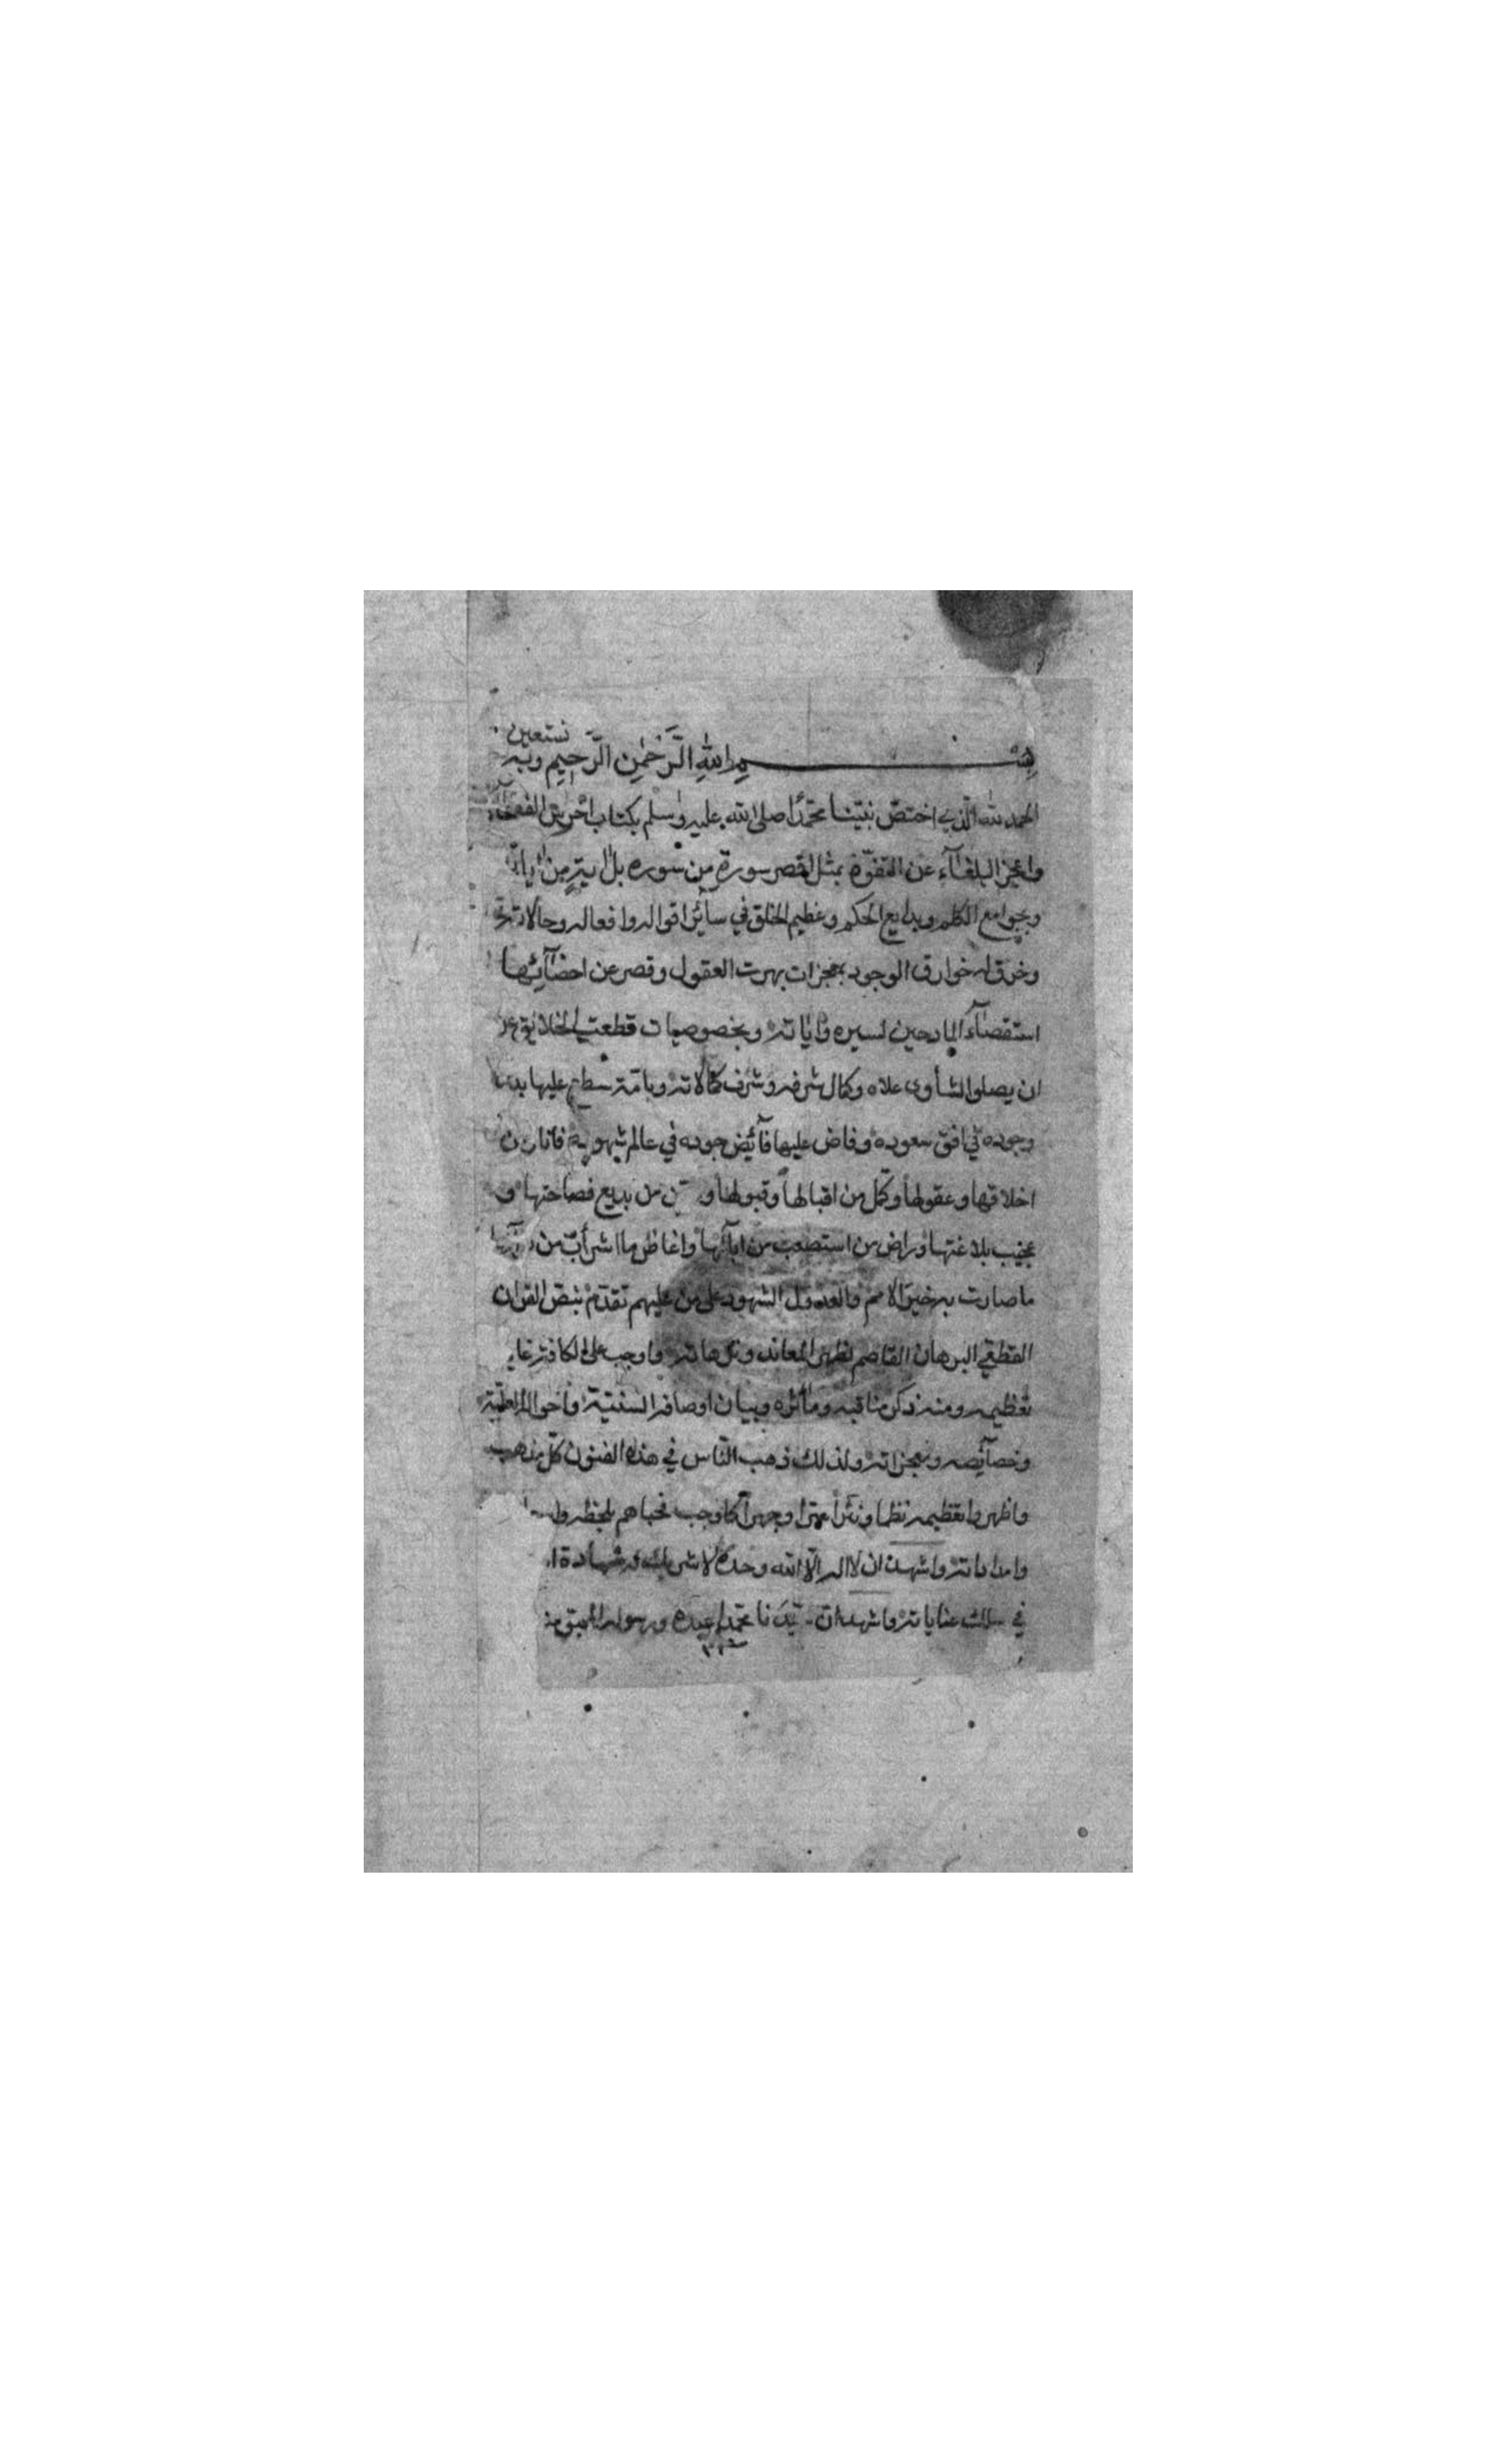 بسم الله الرحمن الرحيم وبه نستعين
الحمد لله الذي اختص نبينا محمدا صلى الله عليه وسلم بكتاب اخرس الفصحآء
واعجز البلغآء عن التفوّه بمثل اقصر سورة من سوره بل اية من اياته
وبجوامع الكلم وبدايع الحكم وعظيم الخلق في سائر اقواله وافعاله وحالاته
وخرق له خوارق الوجود بمعجزات بهرت العقول وقصر عن احصآئها
استقصآء المادحين لسيره واياته وبخصوصيات قطعت الخلايق عن
ان يصلوا لشأوى علاه وكمال شرفه وشرف كمالاته وبامة سطع عليها بدر
وجوده في افق سعوده وفاض عليها فآئض جوده في عالم شهوده
اخلاقها وعقولها وكمل من اقبالها وقبولها من بديع فصاحتها و
عجيب بلاغتها وراض من استصعب من ابآئها واغاظ ما اشرأب من
ما صارت به خير الامم والعدول الشهود على من عليهم تقدم بنص القران
القطعي البرهان القاصم لظهر المعاند وترهاته واوجب على الكافة غاية
تعظيمه ومنه ذكر مناقبه ومآثره وبيان اوصافه السنية واحواله العلية
وخصآئصه ومعجزاته ولذلك ذهب الناس في هذه الفنون كل مذهب
واظهروا تعظيمه نظما ونثرا سرا وجهرا كما وجب فحباهم
وامداداته واشهد ان لا اله الا الله وحده لا شريك له شهادة
في سلك عناياته واشهد ان سيدنا محمدا عبده ورسوله